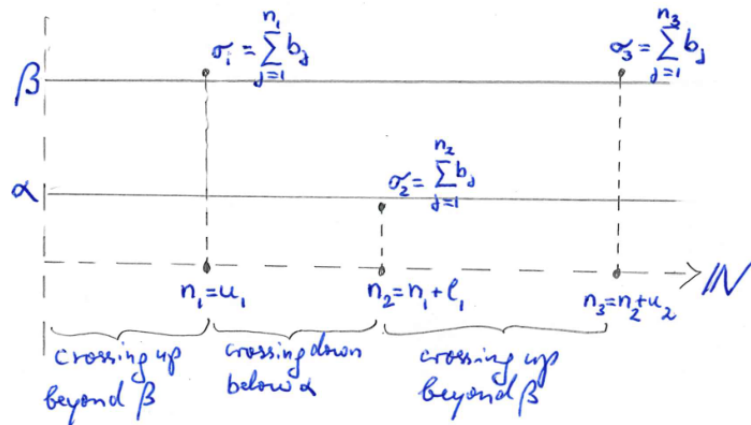 σ₁ = ∑_{j=1}^{n₁} b_j
σ₃ = ∑_{j=1}^{n₃} b_j
β
σ₂ = ∑_{j=1}^{n₂} b_j
α
n₁=u₁
n₂=n₁+l₁
n₃=n₂+u₂
ℕ
crossing up
beyond β
crossing down
below α
crossing up
beyond β